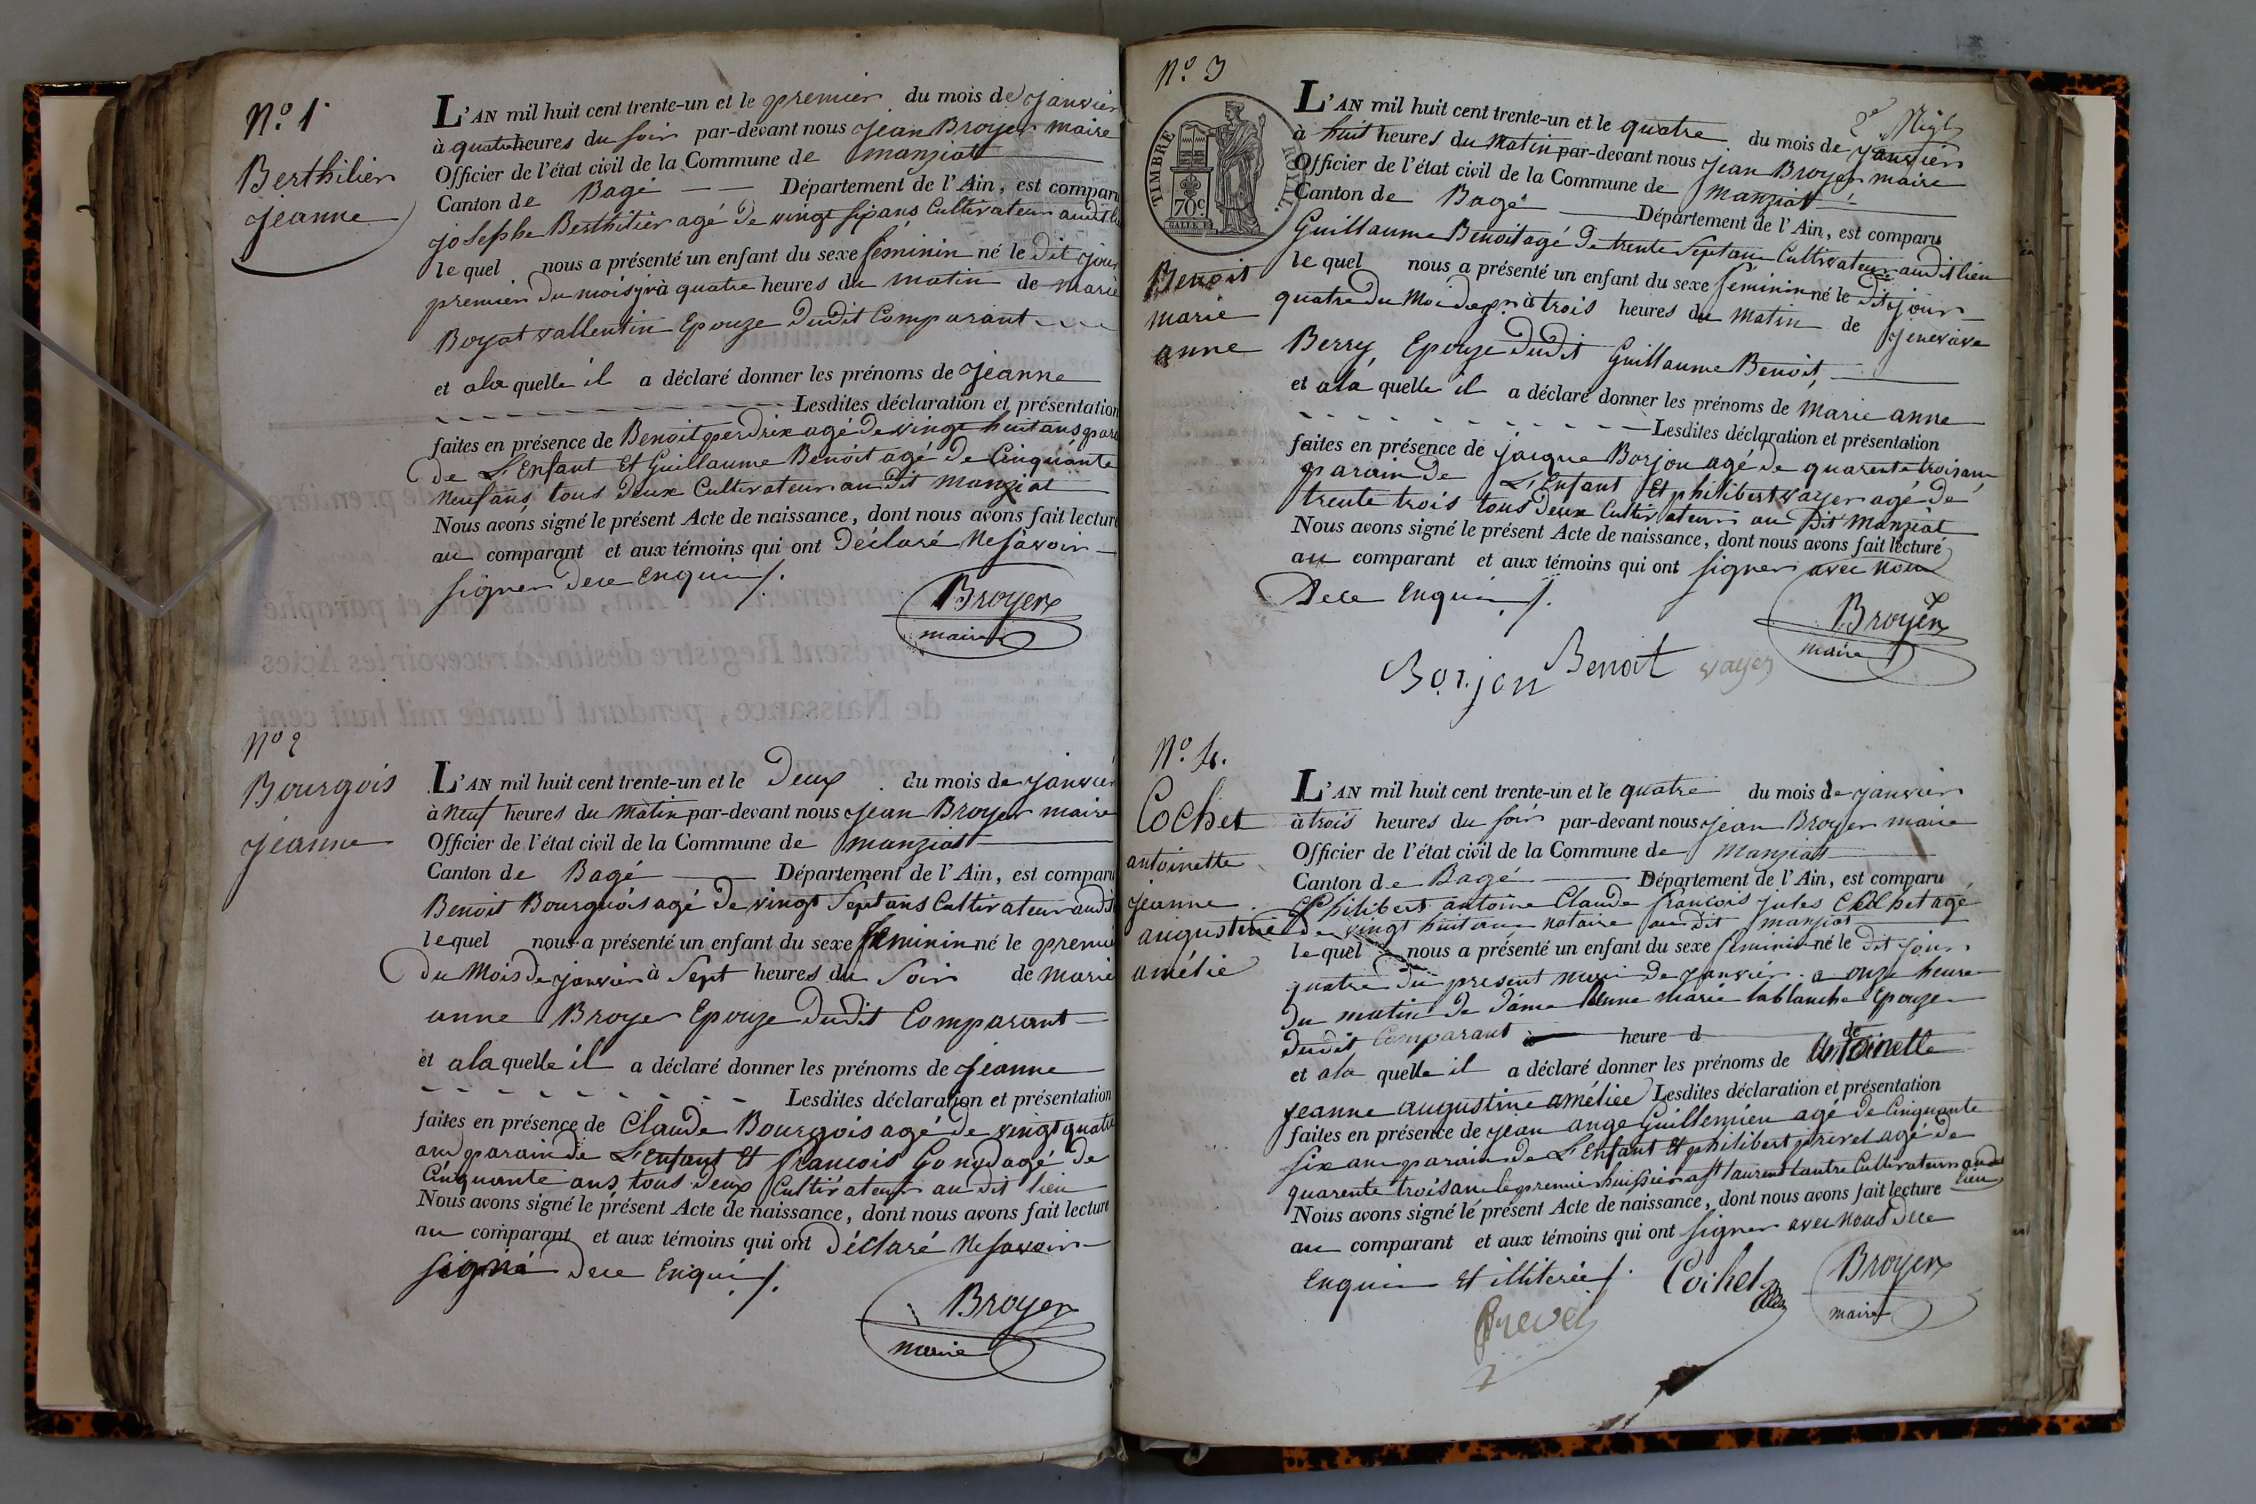 N.º 1
Berthilier
jeanne
L'AN mil huit cent trente-un et le premier du mois de janvier
à quatre heures du soir par-devant nous jean Broyer maire
Officier de l'état civil de la Commune de manziat
Canton de Bagé Département de l'Ain, est comparu
joSephe Berthilier agé de vingt six ans Cultivateur audit
le quel nous a présenté un enfant du sexe féminin né le dit jour
premier du mois à quatre heures du matin de marie
Boyat vallentin Epouze dudit Comparant
et a la quelle il a déclaré donner les prénoms de jeanne
Lesdites déclaration et présentation
faites en présence de Benoit perdrix agé de vingt huit ans
de L'Enfant Et Guillaume Benoit agé de Cinquante
Neuf ans, tous deux Cultivateur au dit manziat
Nous avons signé le présent Acte de naissance, dont nous avons fait lecture
au comparant et aux témoins qui ont Déclaré Ne savoir
signer dece Enqui
Broyer
maire
Nº 2
Bourgois
jeanne
L'AN mil huit cent trente-un et le Deux du mois de janvier
à Neuf heures du matin par-devant nous jean Broyer maire
Officier de l'état civil de la Commune de manziat
Canton de Bagé Département de l'Ain, est comparu
Benoit Bourgois agé de vingt Sept ans Cultivateur audit
lequel nous a présenté un enfant du sexe feminin né le premier
du Mois de janvier à Sept heures du Soir de marie
anne Broyer Epouze dudit Comparant
et a la quelle il a déclaré donner les prénoms de jeanne
Lesdites déclaration et présentation
faites en présence de Claude Bourgois agé de vingt quatre
ans parain de L'enfant Et francois Gonod agé de
Cinquante ans, tous deux Cultivateur au dit lieu
Nous avons signé le présent Acte de naissance, dont nous avons fait lecture
au comparant et aux témoins qui ont Déclaré Ne savoir
signé dece Enqui
Broyer
maire
N.º 3
TIMBRE ROYAL
70 c
Benoit
marie
anne
L'AN mil huit cent trente-un et le quatre du mois de janvier
à huit heures du matin par-devant nous jean Broyer maire
Officier de l'état civil de la Commune de Manziat
Canton de Bagé Département de l'Ain, est comparu
Guillaume Benoit agé de trente Sept ans Cultivateur audit lieu
le quel nous a présenté un enfant du sexe féminin né le dit jour
quatre du Moi à trois heures du matin de jenevieve
Berry Epouze dudit Guillaume Benoit,
et a la quelle il a déclaré donner les prénoms de marie anne
Lesdites déclaration et présentation
faites en présence de jacque Borjon agé de quarente trois ans
parain de L'Enfant Et philibert vayer agé de
trente trois tous deux Cultivateur au Dit Manziat
Nous avons signé le présent Acte de naissance, dont nous avons fait lecture
au comparant et aux témoins qui ont signer avec nous
Dece Enqui
Broyer
maire
Borjon Benoit vayer
N.º 4.
Cochet
antoinette
jeanne
augustine
amélie
L'AN mil huit cent trente-un et le quatre du mois de janvier
à trois heures du soir par-devant nous jean Broyer maire
Officier de l'état civil de la Commune de Manziat
Canton de Bagé Département de l'Ain, est comparu
Philibert antoine Claude francois jules Cochet agé
de vingt huit ans notaire au dit manziat
le quel nous a présenté un enfant du sexe féminin né le dit jour
quatre du present mois de janvier a onze heure
du matin de dame marie lablanche Epouze
dudit Comparant à heure d de
et a la quelle il a déclaré donner les prénoms de antoinette
jeanne augustine améliee Lesdites déclaration et présentation
faites en présence de jean ange Guillemien agé de Cinquante
six ans parain de L'Enfant Et philibert privel agé de
quarente trois ans le premier huissier a St laurent lautre Cultivateur audit
lieu
Nous avons signé le présent Acte de naissance, dont nous avons fait lecture
au comparant et aux témoins qui ont signer avec nous dece
Enqui Et illiterée
Cochet
Broyer
maire
Prevel